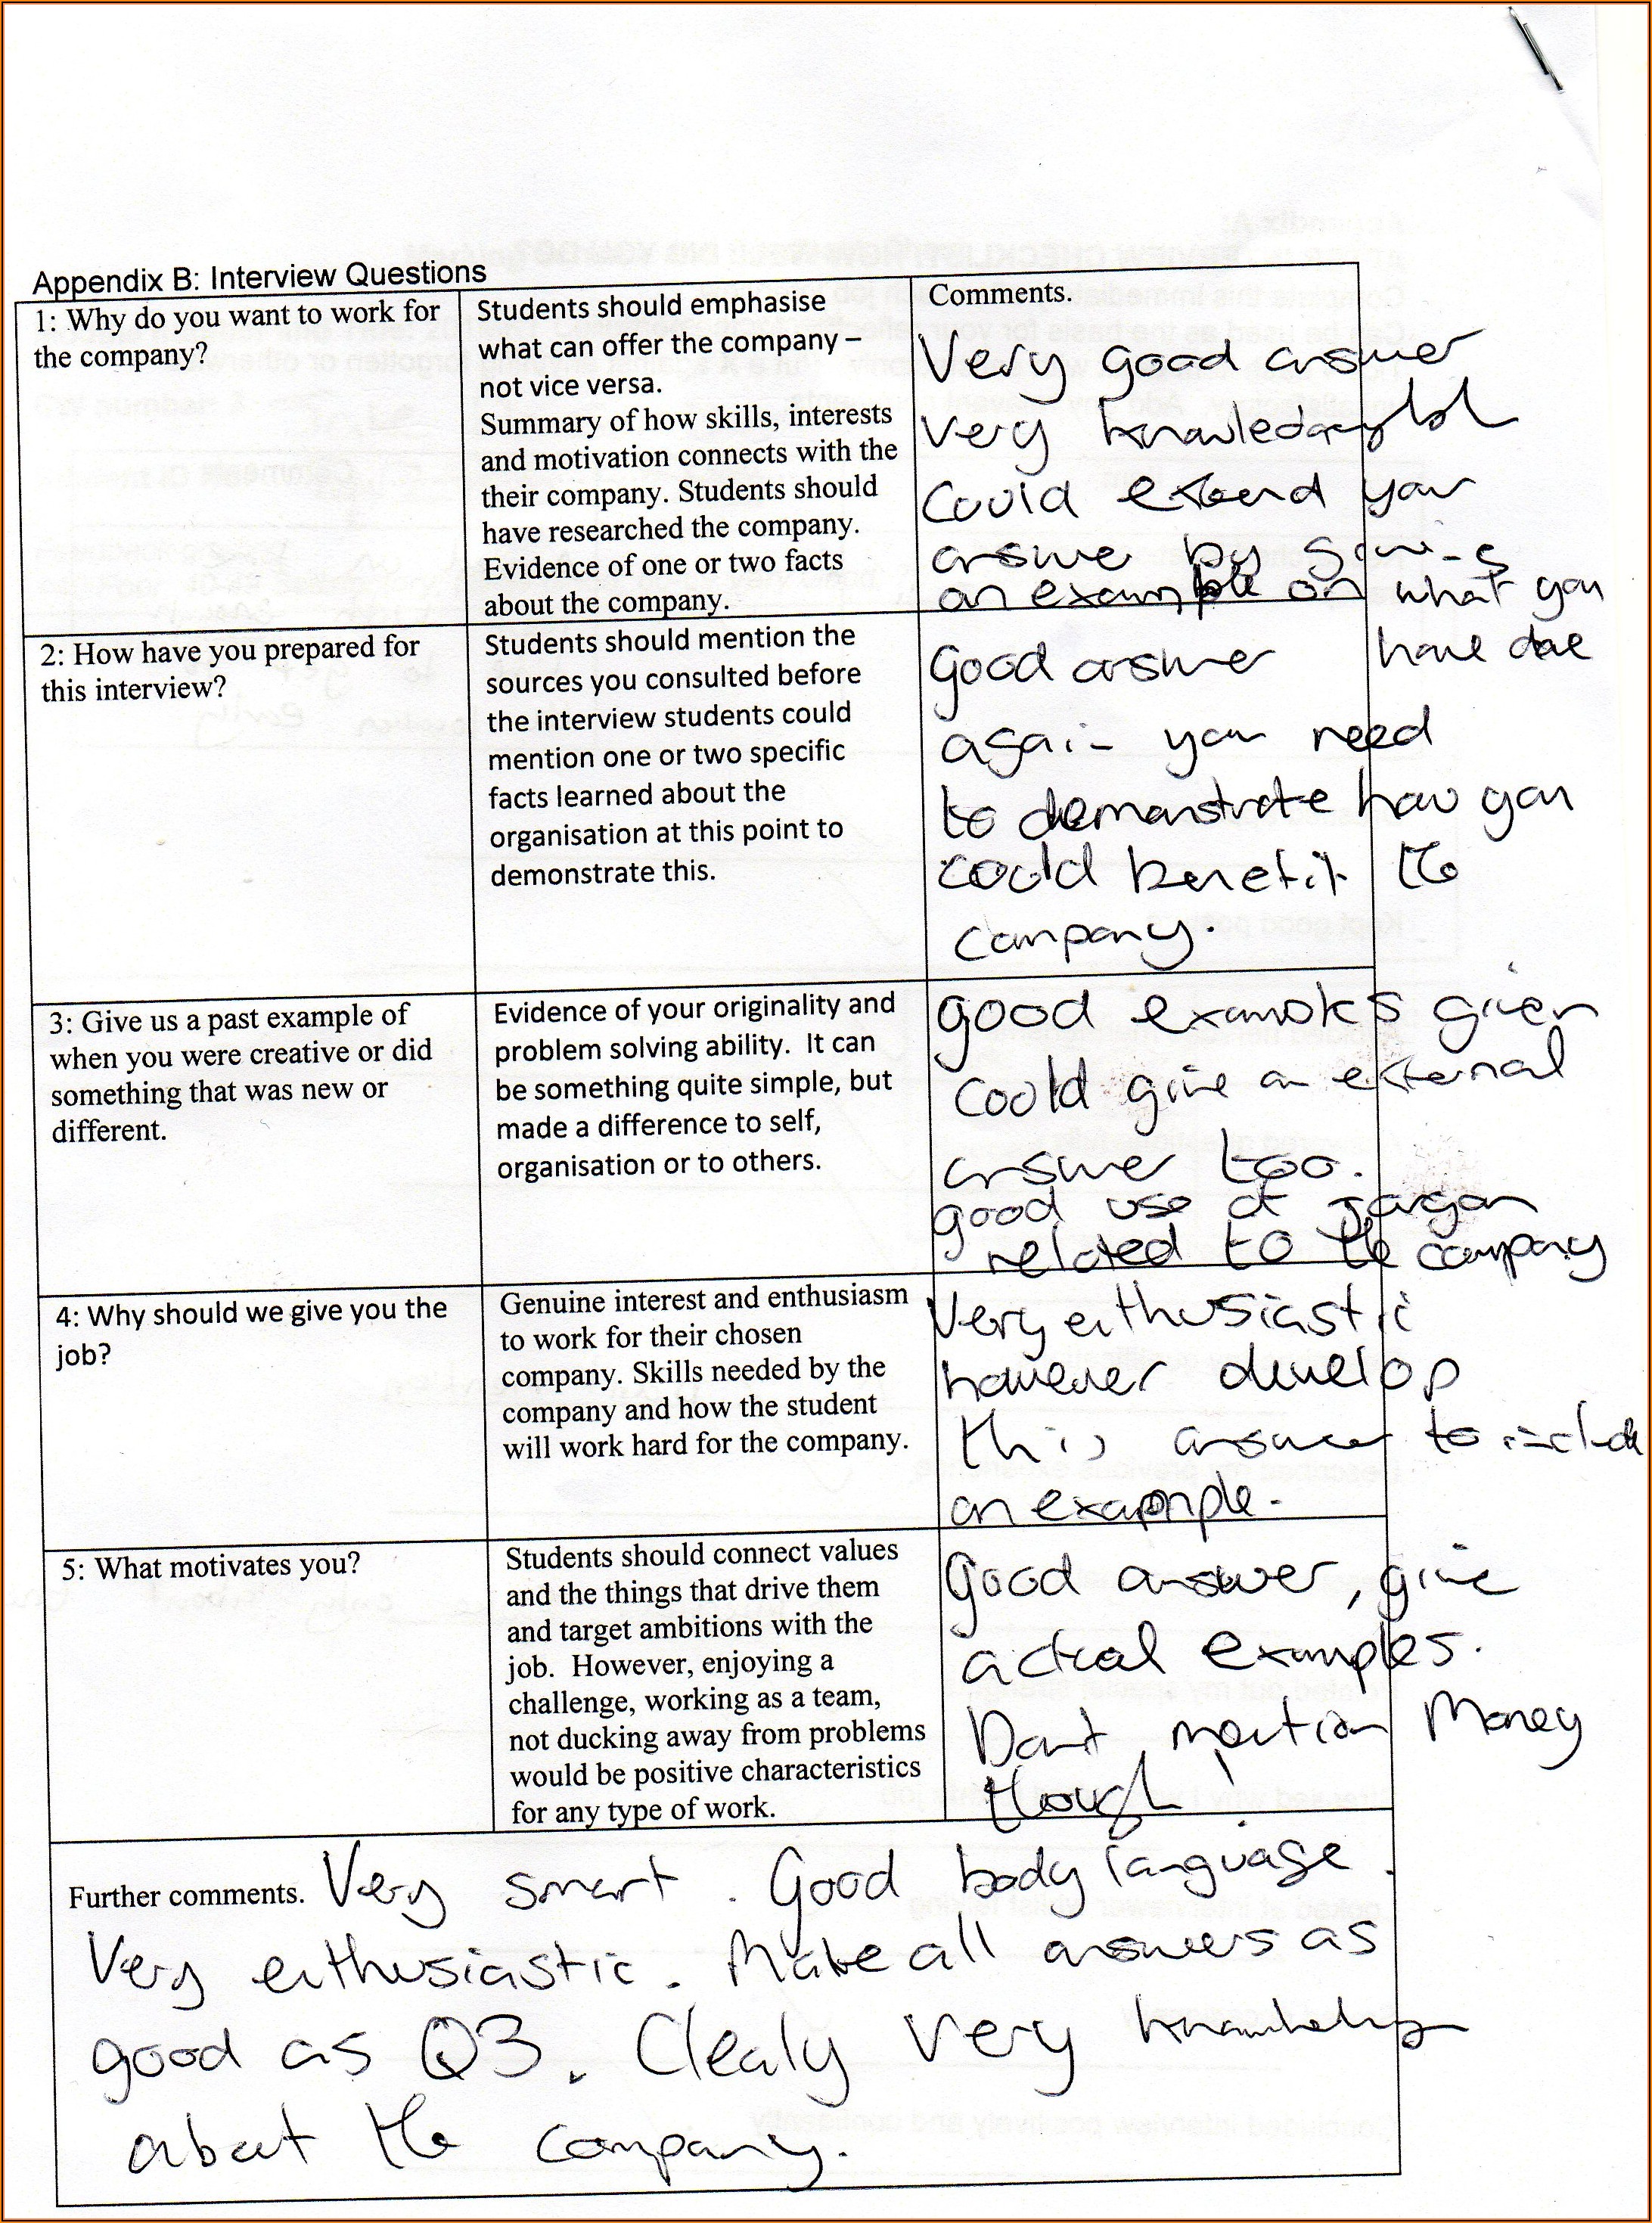 Appendix B: Interview Questions
1: Why do you want to work for
the company?
Students should emphasise
what can offer the company –
not vice versa.
Summary of how skills, interests
and motivation connects with the
their company. Students should
have researched the company.
Evidence of one or two facts
about the company.
Comments.
Very good answer
very
Could extend your
answer by
an example on what you
have done
2: How have you prepared for
this interview?
Students should mention the
sources you consulted before
the interview students could
mention one or two specific
facts learned about the
organisation at this point to
demonstrate this.
Good answer
again you need
to demonstrate how you
could benefit the
company.
3: Give us a past example of
when you were creative or did
something that was new or
different.
Evidence of your originality and
problem solving ability. It can
be something quite simple, but
made a difference to self,
organisation or to others.
good examples given
could give an external
answer too.
good use of Jargon
related to the company
4: Why should we give you the
job?
Genuine interest and enthusiasm
to work for their chosen
company. Skills needed by the
company and how the student
will work hard for the company.
Very enthusiastic
however develop
this answer to include
an example.
5: What motivates you?
Students should connect values
and the things that drive them
and target ambitions with the
job. However, enjoying a
challenge, working as a team,
not ducking away from problems
would be positive characteristics
for any type of work.
Good answer, give
actual examples.
Dont mention Money
though!
Further comments. Very smart. Good body language.
Very enthusiastic. Make all answers as
good as Q3. Clealy very
about the company.